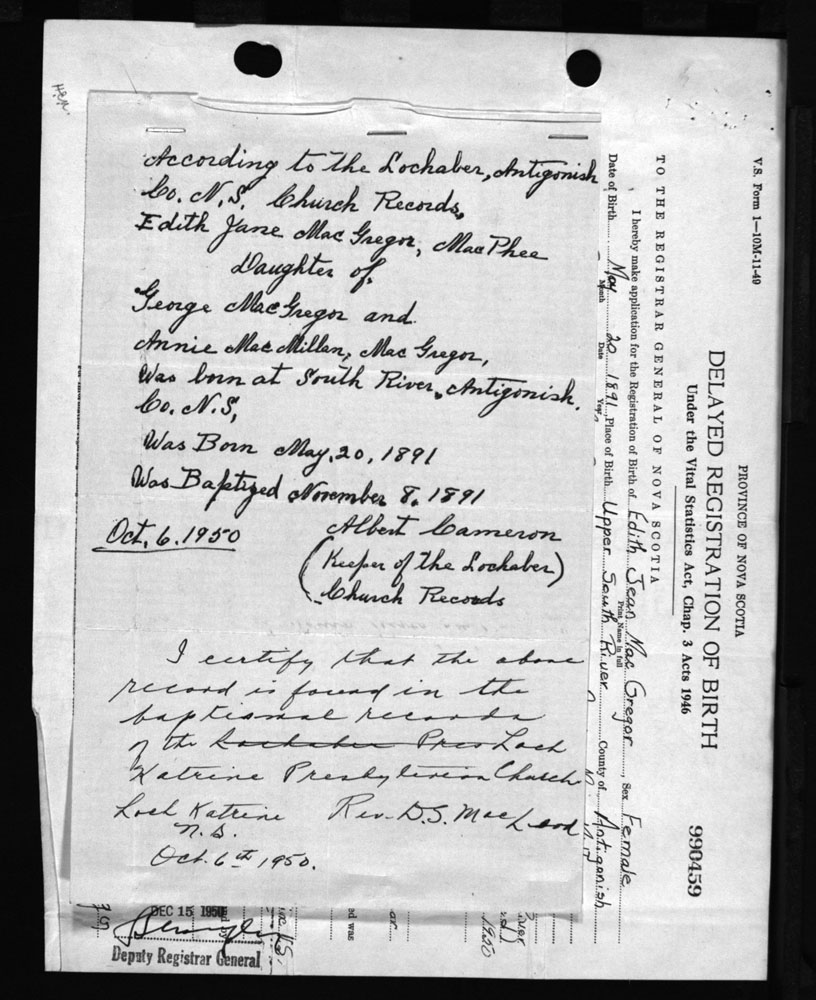 According to the Lochaber, Antigonish
Co. N.S. Church Records,
Edith Jane MacGregor, MacPhee
Daughter of,
George MacGregor and
Annie MacMillan, MacGregor,
Was born at South River, Antigonish.
Co. N.S,
Was Born May, 20, 1891
Was Baptized November 8, 1891
Oct. 6. 1950
Albert Cameron
(Keeper of the Lochaber)
Church Records
I certify that the above
record is found in the
baptismal records
of the Lochaber Pres Loch
Katrine Presbyterian Church
Loch Katrine Rev. D.S. MacLeod
N.S.
Oct. 6th 1950.
V.S. Form 1—10M-11-49
PROVINCE OF NOVA SCOTIA
DELAYED REGISTRATION OF BIRTH
Under the Vital Statistics Act, Chap. 3 Acts 1946
990459
TO THE REGISTRAR GENERAL OF NOVA SCOTIA
I hereby make application for the Registration of Birth of Edith Jean MacGregor, Sex Female
Print Name in full
Date of Birth May 20 1891, Place of Birth Upper South River County of Antigonish
Month Date Year
1950
ed was
or
DEC 15 1950
Deputy Registrar General